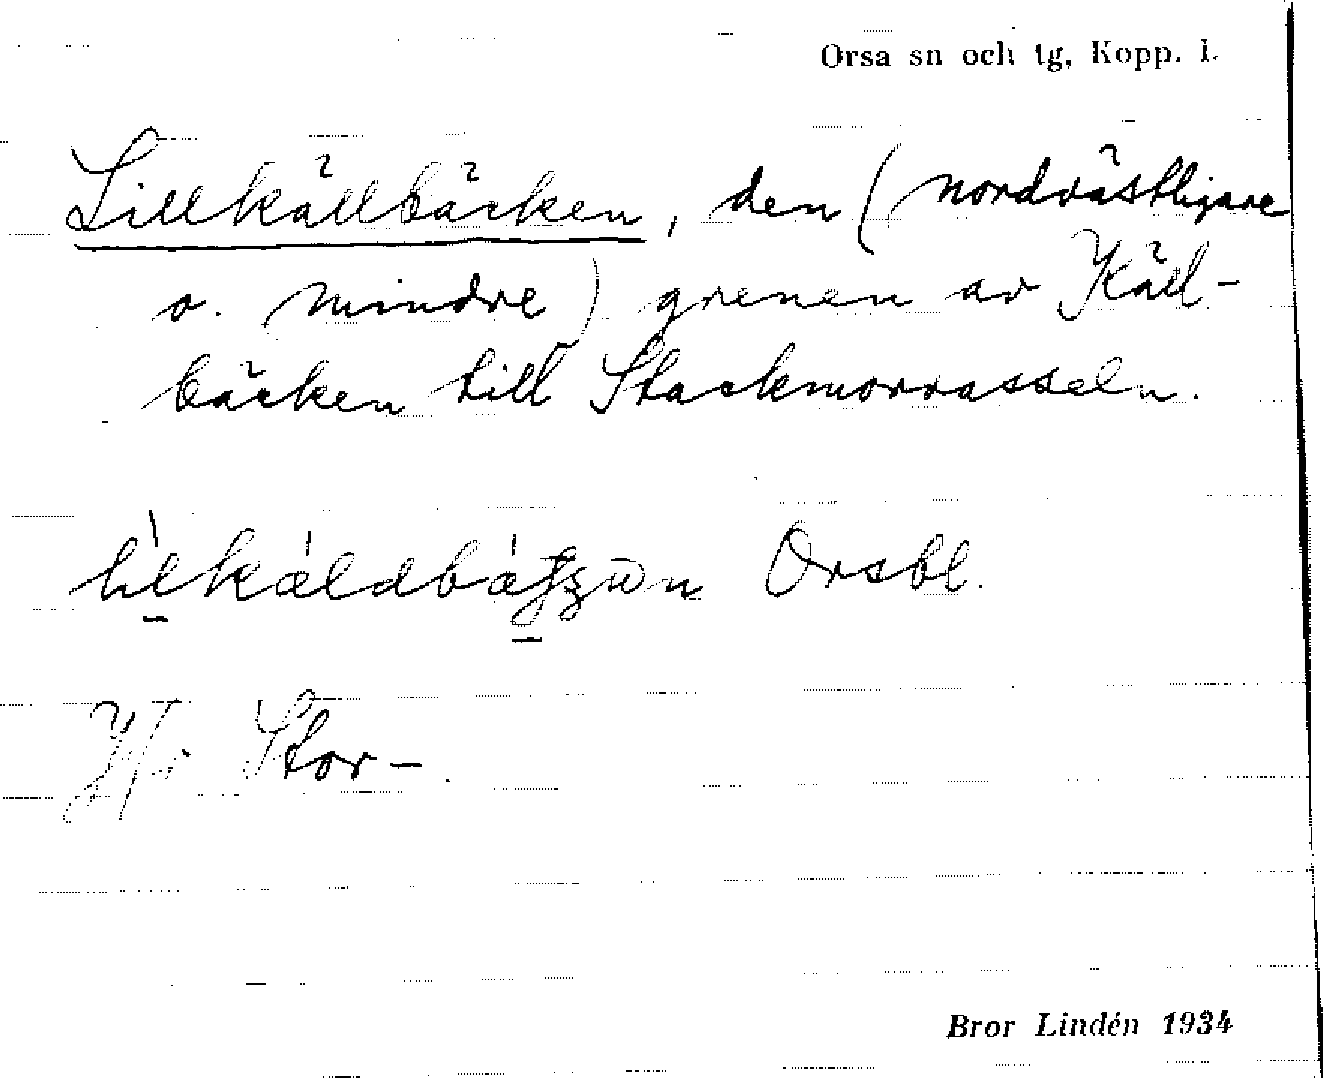 Orsa sn och tg, Kopp. l.
Lillkällbäcken, den (nordvästligare
o. mindre) grenen av Käll-
bäcken till Stackmorrasseln.
Orsbl.
Jfr Stor-.
Bror Lindén 1934